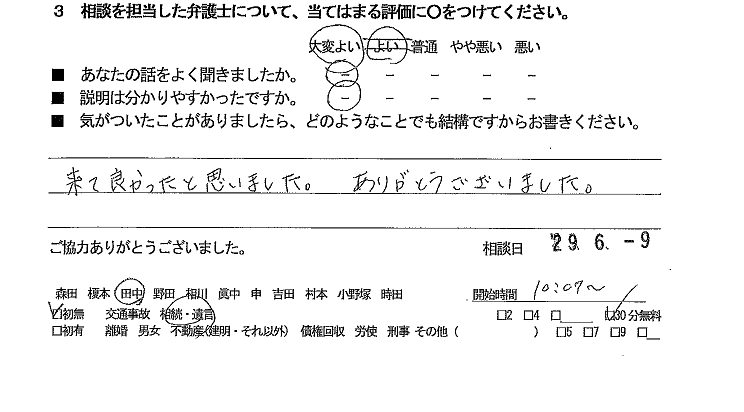 3 相談を担当した弁護士について、当てはまる評価に○をつけてください。
大変よい よい 普通 やや悪い 悪い
■ あなたの話をよく聞きましたか。 － － － － －
■ 説明は分かりやすかったですか。 － － － － －
■ 気がついたことがありましたら、どのようなことでも結構ですからお書きください。
来て良かったと思いました。 ありがとうございました。
ご協力ありがとうございました。 相談日 '29. 6. －9
森田 榎本 田中 野田 相川 眞中 申 吉田 村本 小野塚 時田 開始時間 10:07～
□初無 交通事故 相続・遺言 □2 □4 □____ □30分無料
□初有 離婚 男女 不動産(建明・それ以外) 債権回収 労使 刑事 その他 ( ) □5 □7 □9 □__